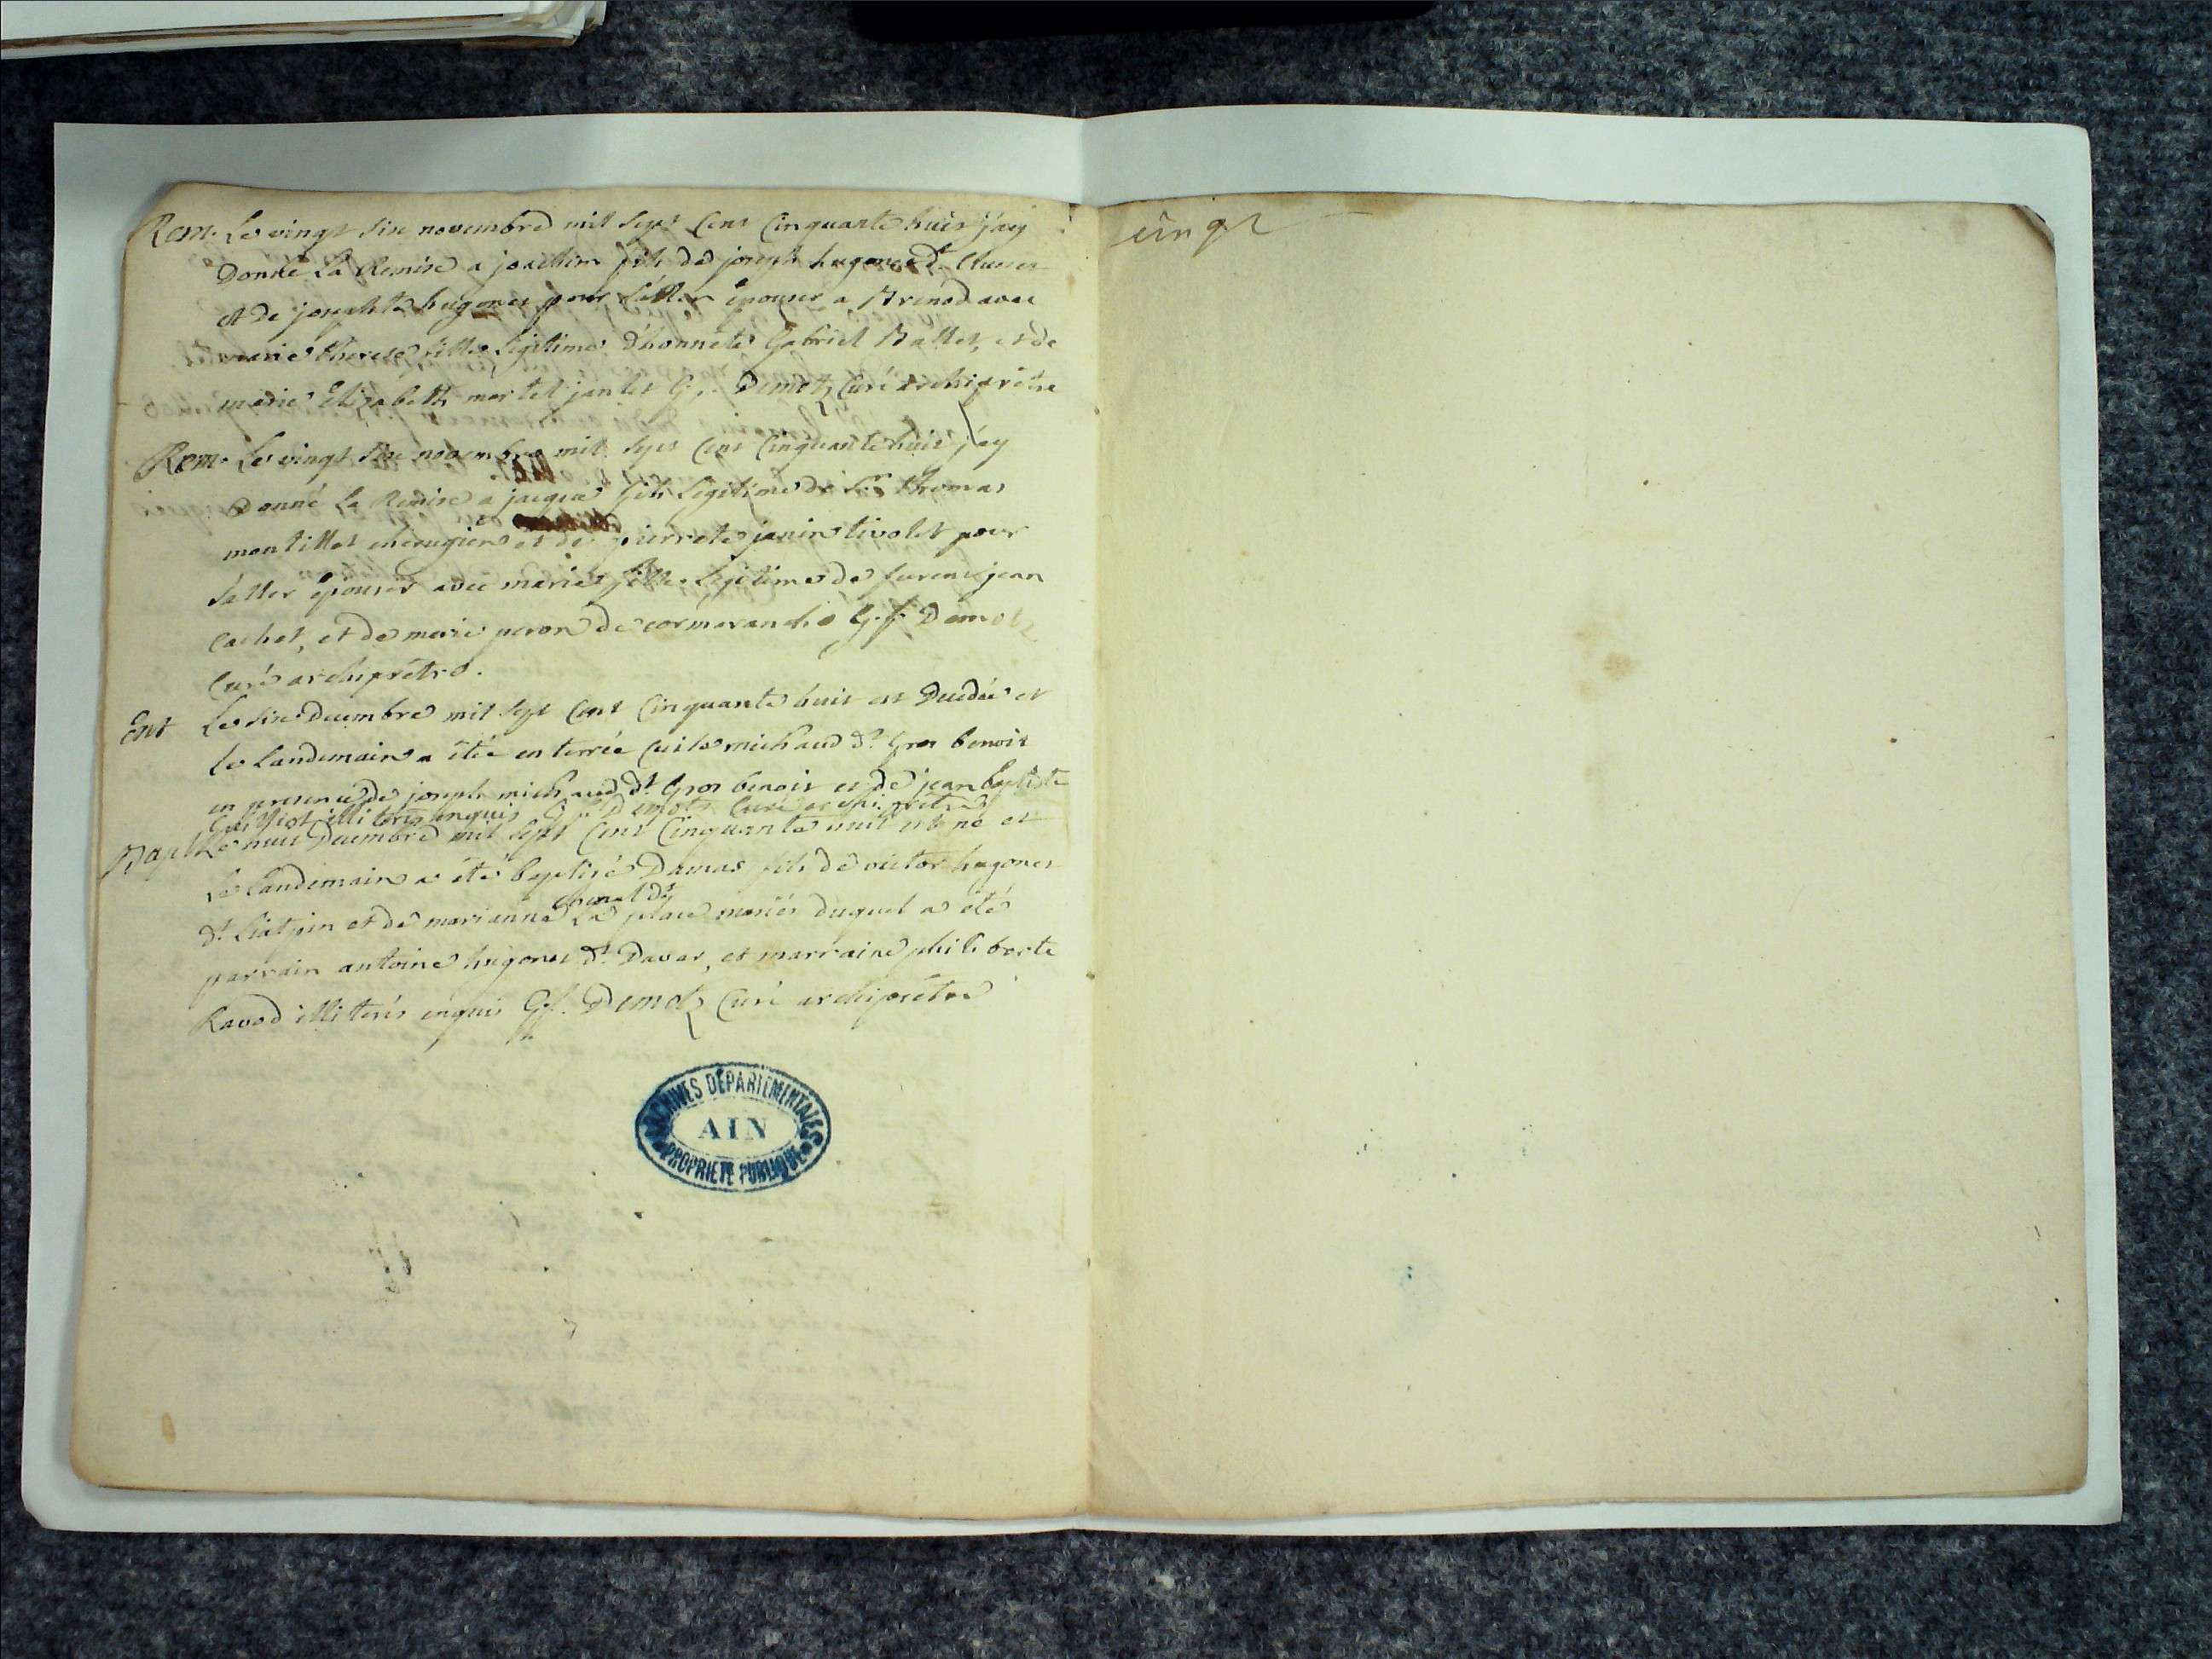 Rem. Le vingt six novembre mil sept cent cinquante huit j'ay
donné la Remise a joachim fils de joseph hugonet dt
et de josephte hugonet pour s'aller epouser a Brenod avec
marie therese fille legitime d'honnete Gabriel Ballet, et de
marie Elizabeth martel janlet G. f. Demotz Curé archiprêtre
Rem. Le vingt six novembre mil sept cent cinquante huit j'ay
Donné la Remise a jacque fils legitime de Sr. thomas
montillet chirurgien et de pierrete janin tivolet pour
s'aller épouser avec marie fille legitime de furent jean
cachet, et de marie peron de cormaranche G. f. Demotz
Curé archiprêtre.
Ent Le six Decembre mil sept cent cinquante huit est Decedée et
le landemain a étée enterrée michaud dt. Gros benoit
en presence de joseph michaud dt. Gros benoit et de jean baptiste
illiterés enquis G. f. Demotz Curé archiprêtre
Bapt Le huit Decembre mil sept cent cinquante huit est né et
le landemain a été baptisé Damas fils de victor hugonet
dt. et de marianne la place mariés duquel a été
parrain antoine hugonet dt. Davar, et marraine philiberte
Ravod illiterés enquis G. f. Demotz Curé archiprêtre
ARCHIVES DÉPARTEMENTALES
AIN
PROPRIETE PUBLIQUE
vingt